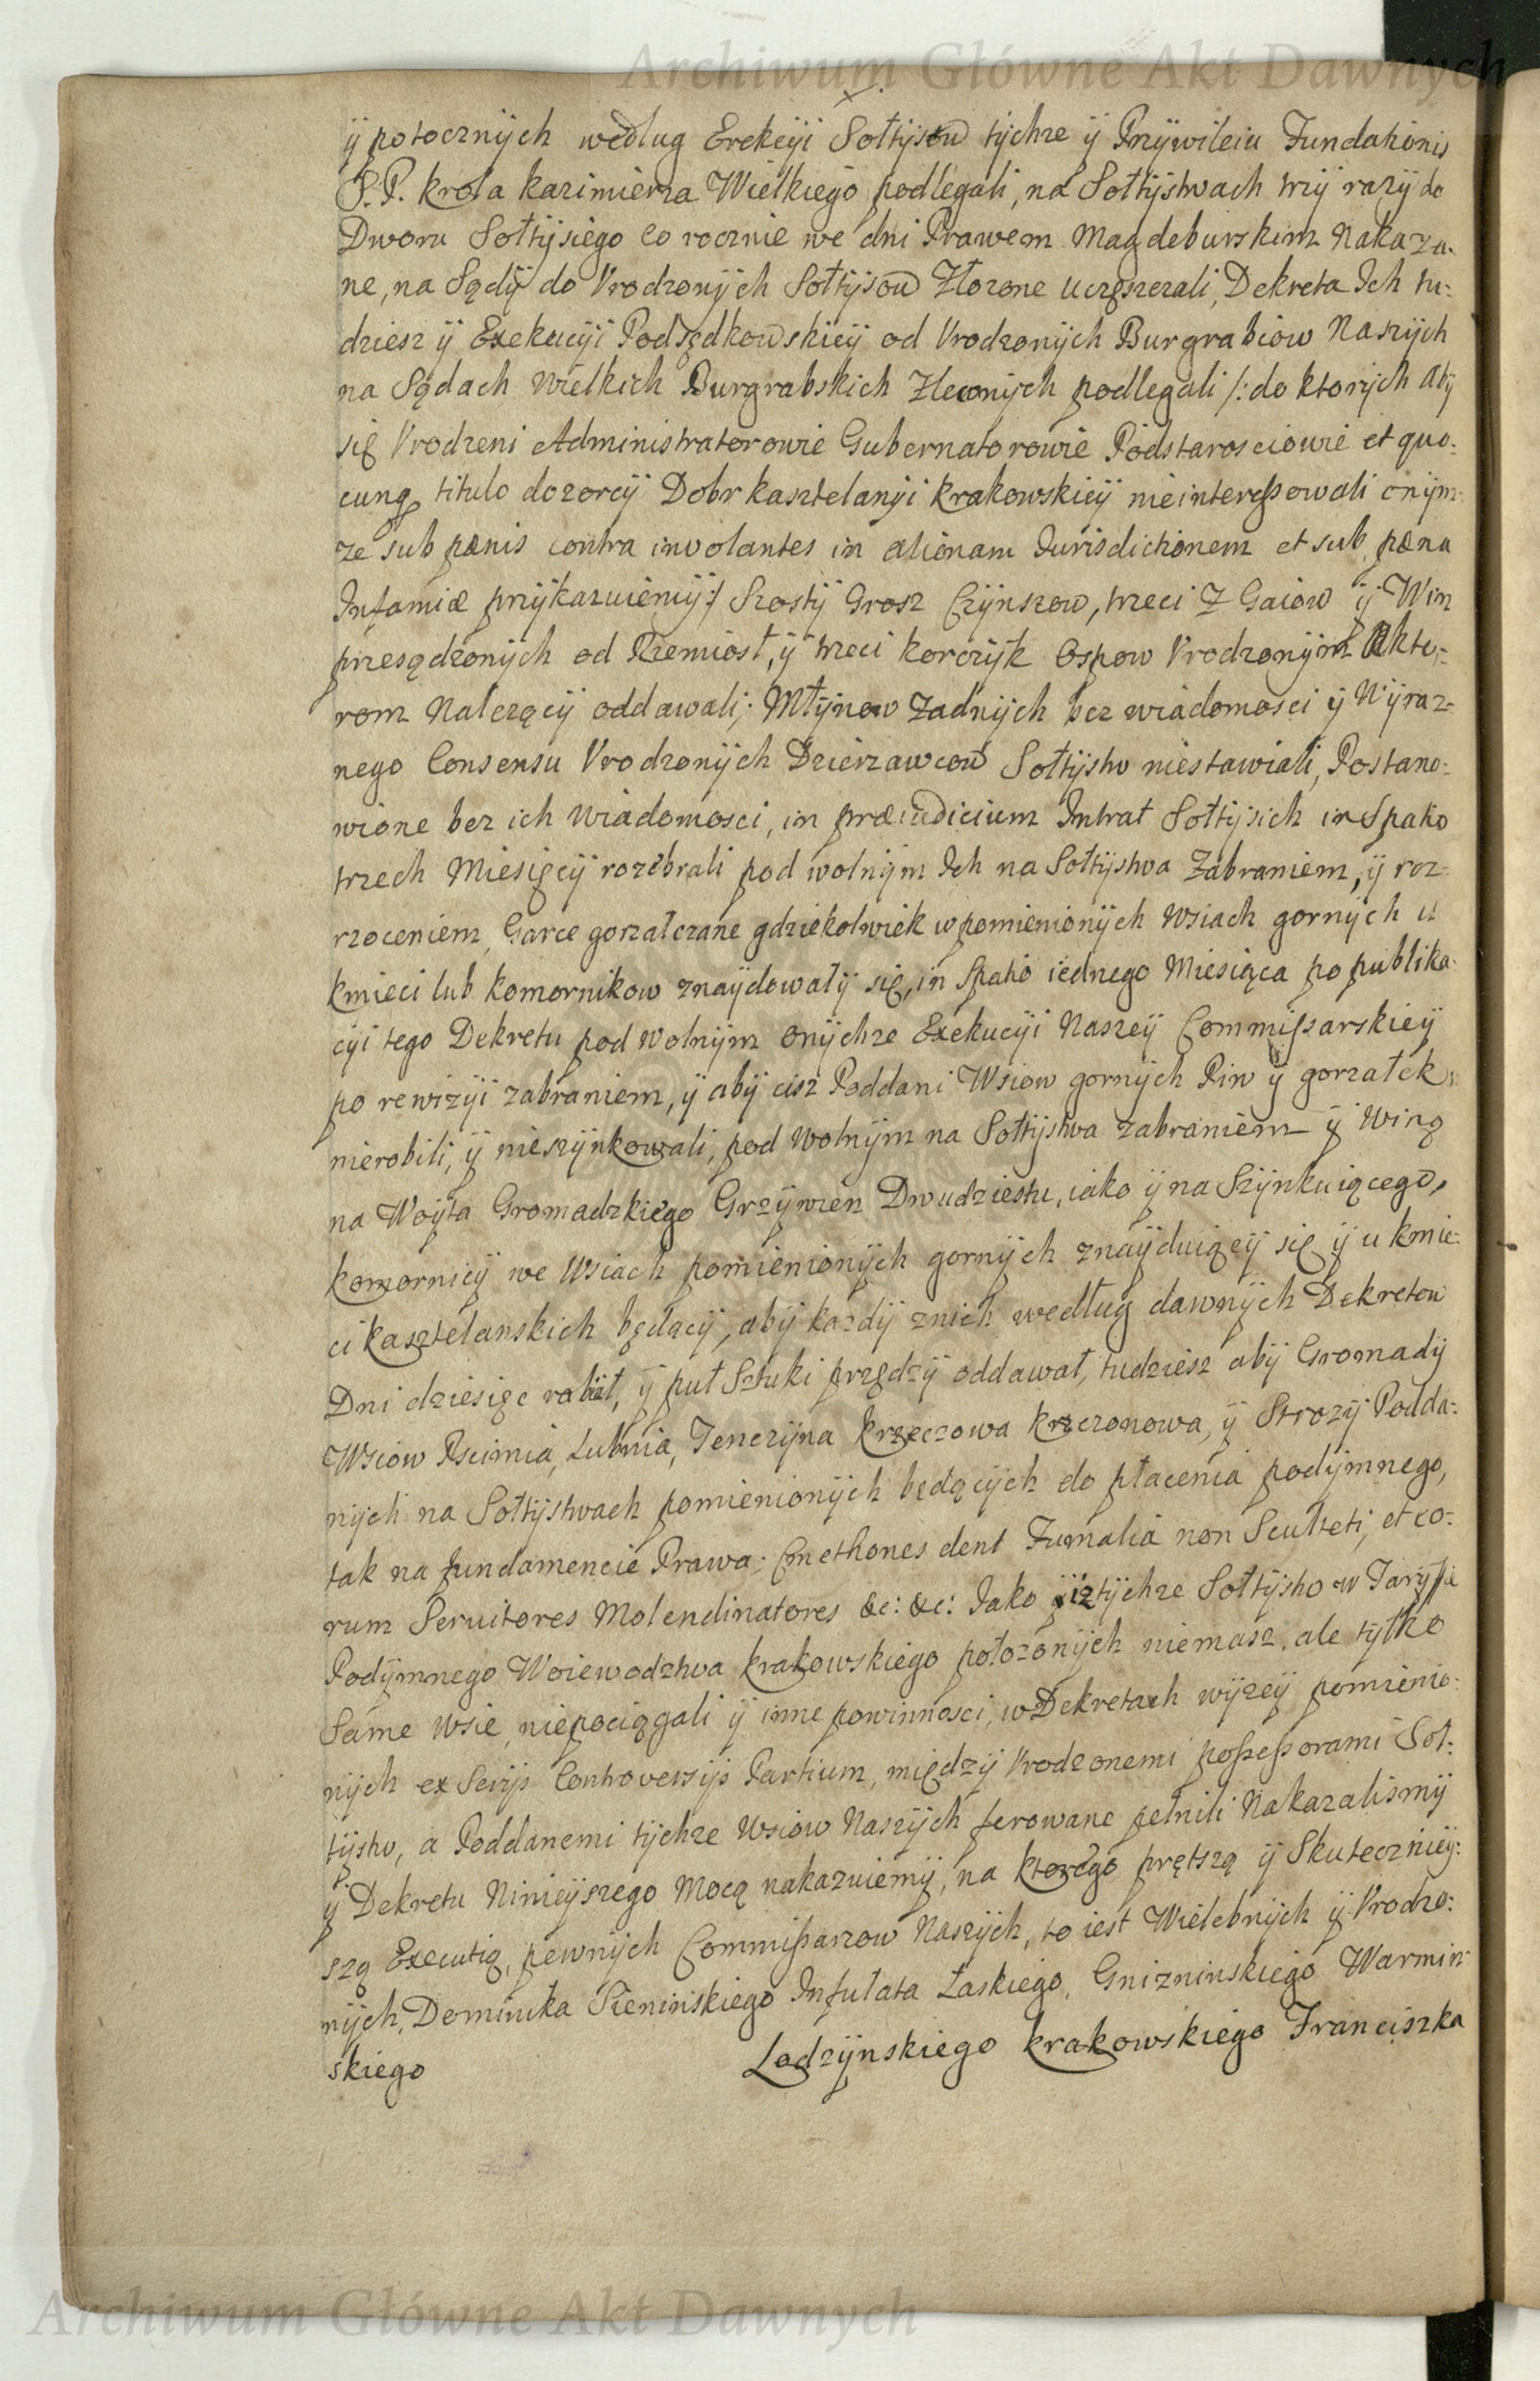 Archiwum Główne Akt Dawnych
ÿ potocznÿch według Erekcÿi Sołtÿsow tÿchze ÿ Przÿwileiu Fundationis
S.P. krola kazimierza Wielkiego podlegali, na Sołtÿstwach trzÿ razÿ do
Dworu Sołtÿsiego co rocznie we dni Prawem Magdeburskim Nakaza-
ne, na Sądÿ do Vrodzonÿch Sołtÿsow Złozone uczęszczali, Dekreta Ich tu:
dziesz ÿ Exekucÿi Podsędkowskieÿ od Vrodzonÿch Burgrabiow Naszÿch
na Sądach Wielkich Burgrabskich Zleconÿch podlegali /: do ktorÿch abÿ
się Vrodzeni Administratorowie Gubernatorowie Podstarosciowie et quo:
cunq titulo dozorcÿ Dobr kasztelanÿi krakowskieÿ nieinteressowali onÿm
ze sub pænis contra involantes in alienam Iurisdictionem et sub pæna
Infamiæ przÿkazuiemÿ:/ Szostÿ Grosz Czÿnszow, trzeci Z Gaiow ÿ Win
przesądzonÿch od Rzemiosł, ÿ trzeci korczÿk Ospow Vrodzonÿm Akto:
rom Nalezącÿ oddawali; Młÿnow Zadnÿch bez wiadomosci ÿ Wÿraz:
nego Consensu Vrodzonÿch Dzierzawcow Sołtÿstw niestawiali, Postano:
wione bez ich Wiadomosci, in præiudicium Intrat Sołtÿsich in Spatio
trzech Miesięcÿ rozebrali pod wolnÿm Ich na Sołtÿstwa Zabraniem, ÿ roz:
rzoceniem, Garce gorzałczane gdziekolwiek w pomienionÿch Wsiach gornÿch u
kmieci lub komornikow znaÿdowałÿ się, in Spatio iednego Miesiąca po publika:
cÿi tego Dekretu pod Wolnÿm onÿchze Exekucÿi Naszeÿ Commissarskieÿ
po rewizÿi zabraniem, ÿ abÿ cisz Poddani Wsiow gornÿch Piw ÿ gorzałek
nierobili, ÿ nieszÿnkowali, pod Wolnÿm na Sołtÿstwa zabraniem ÿ Winą
na Woÿta Gromadzkiego Grzÿwien Dwudziestu, iako ÿ na Szÿnkuiącego,
komornicÿ we Wsiach pomienionÿch gornÿch znaÿduiącÿ się ÿ u kmie:
ci kasztelanskich będącÿ, abÿ kazdÿ znich według dawnÿch Dekretow
Dni dziesięc robił, ÿ puł Sztuki przędzÿ oddawał, tudziesz abÿ Gromadÿ
Wsiow Pscimia, Lubnia, Tenczÿna krzeczowa krzczonowa, ÿ Strozÿ Podda:
nÿch na Sołtÿstwach pomienionÿch będącÿch do płacenia podÿmnego,
tak na fundamencie Prawa: Cmethones dent Fumalia non Sculteti, et eo:
rum Seruitores Molendinatores &c: &c: Iako iz tÿchze Sołtÿstw w Tarÿffie
Podÿmnego Woiewodztwa krakowskiego połozonÿch niemasz, ale tÿlko
Same Wsie, niepociągali ÿ inne powinnosci, w Dekretach wÿzeÿ pomienio:
nÿch ex Serijs Controversijs Partium, międzÿ Vrodzonemi possessorami Soł:
tÿstw, a Poddanemi tÿchze Wsiow Naszÿch ferowane pełnili Nakazalismÿ
ÿ Dekretu Ninieÿszego Mocą nakazuiemÿ, na ktorego prętszą ÿ Skutecznieÿ:
szą Executią, pewnÿch Commissarzow Naszÿch, to iest Wielebnÿch ÿ Vrodzo:
nÿch, Dominika Sieninskiego Infułata Łaskiego, Gnizninskiego Warmin:
skiego Lodzÿnskiego krakowskiego Franciszka
Archiwum Główne Akt Dawnych